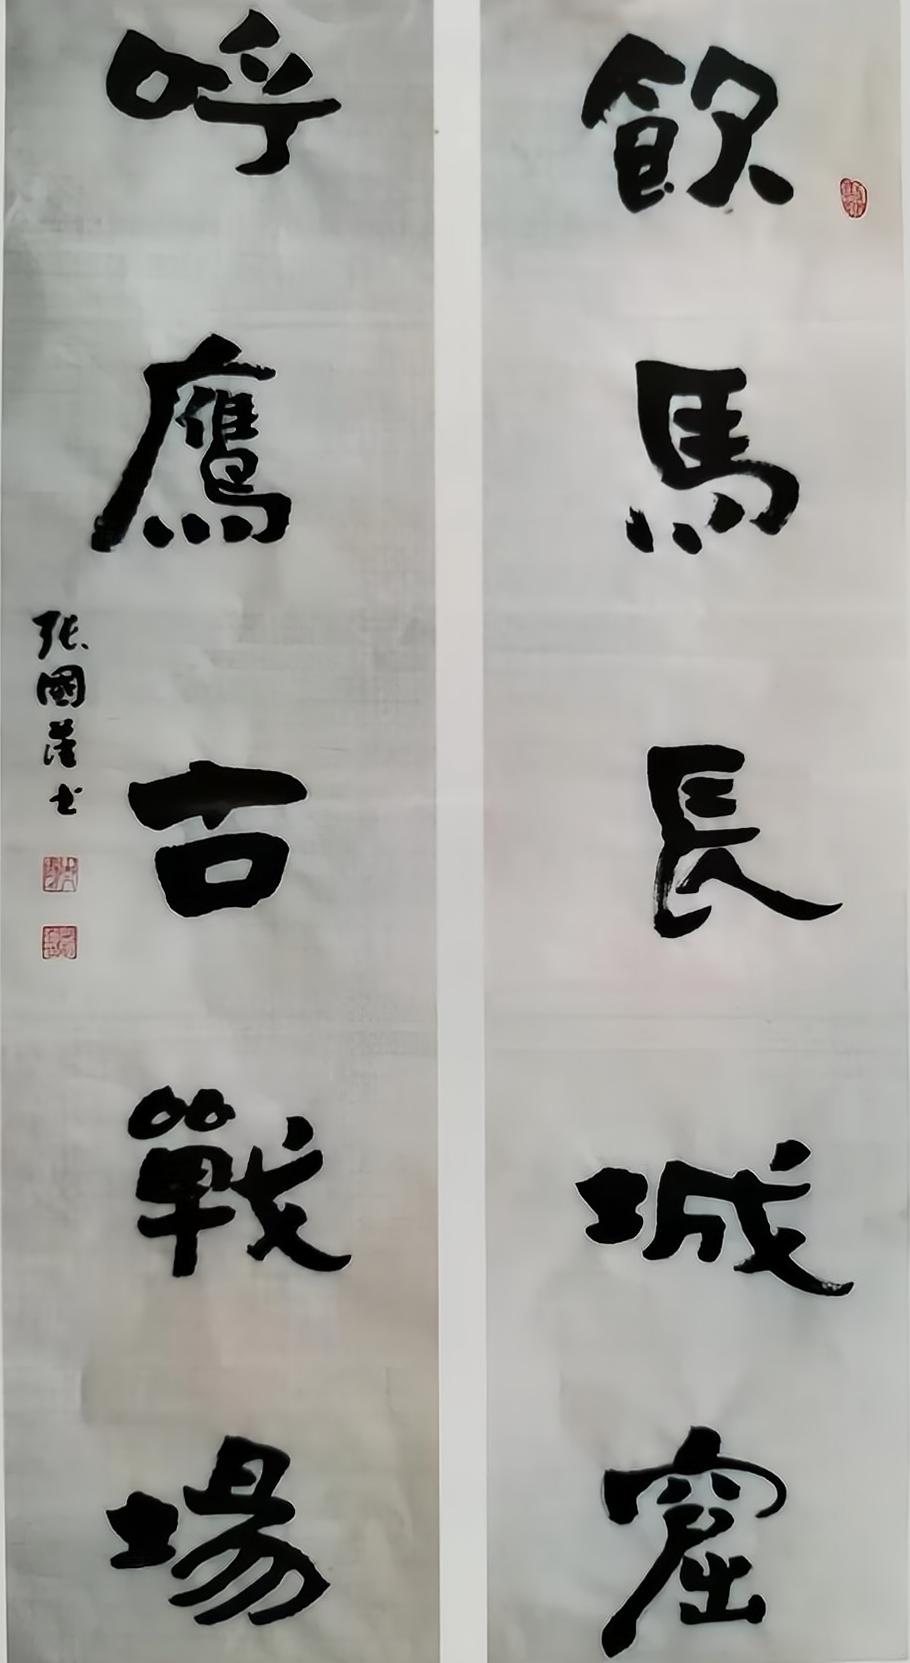 飲馬長城窟
呼鷹古戰場
張國蔭書